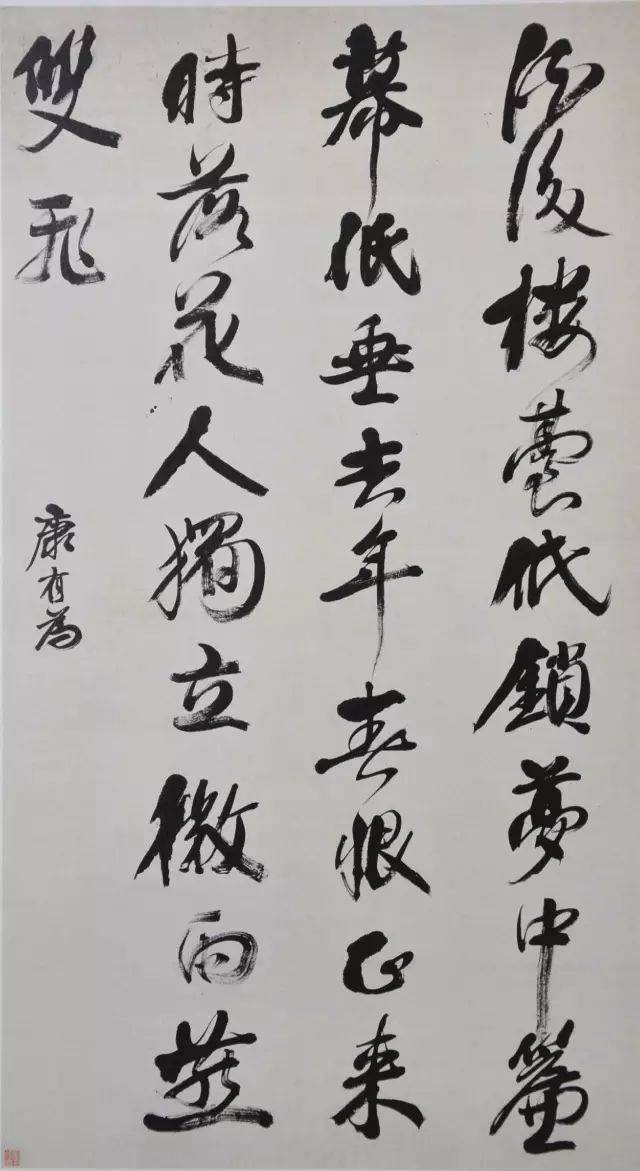 酒後樓臺低鎖夢中簾
幕低垂去年春恨正来
時落花人獨立微雨燕
雙飛
康有為